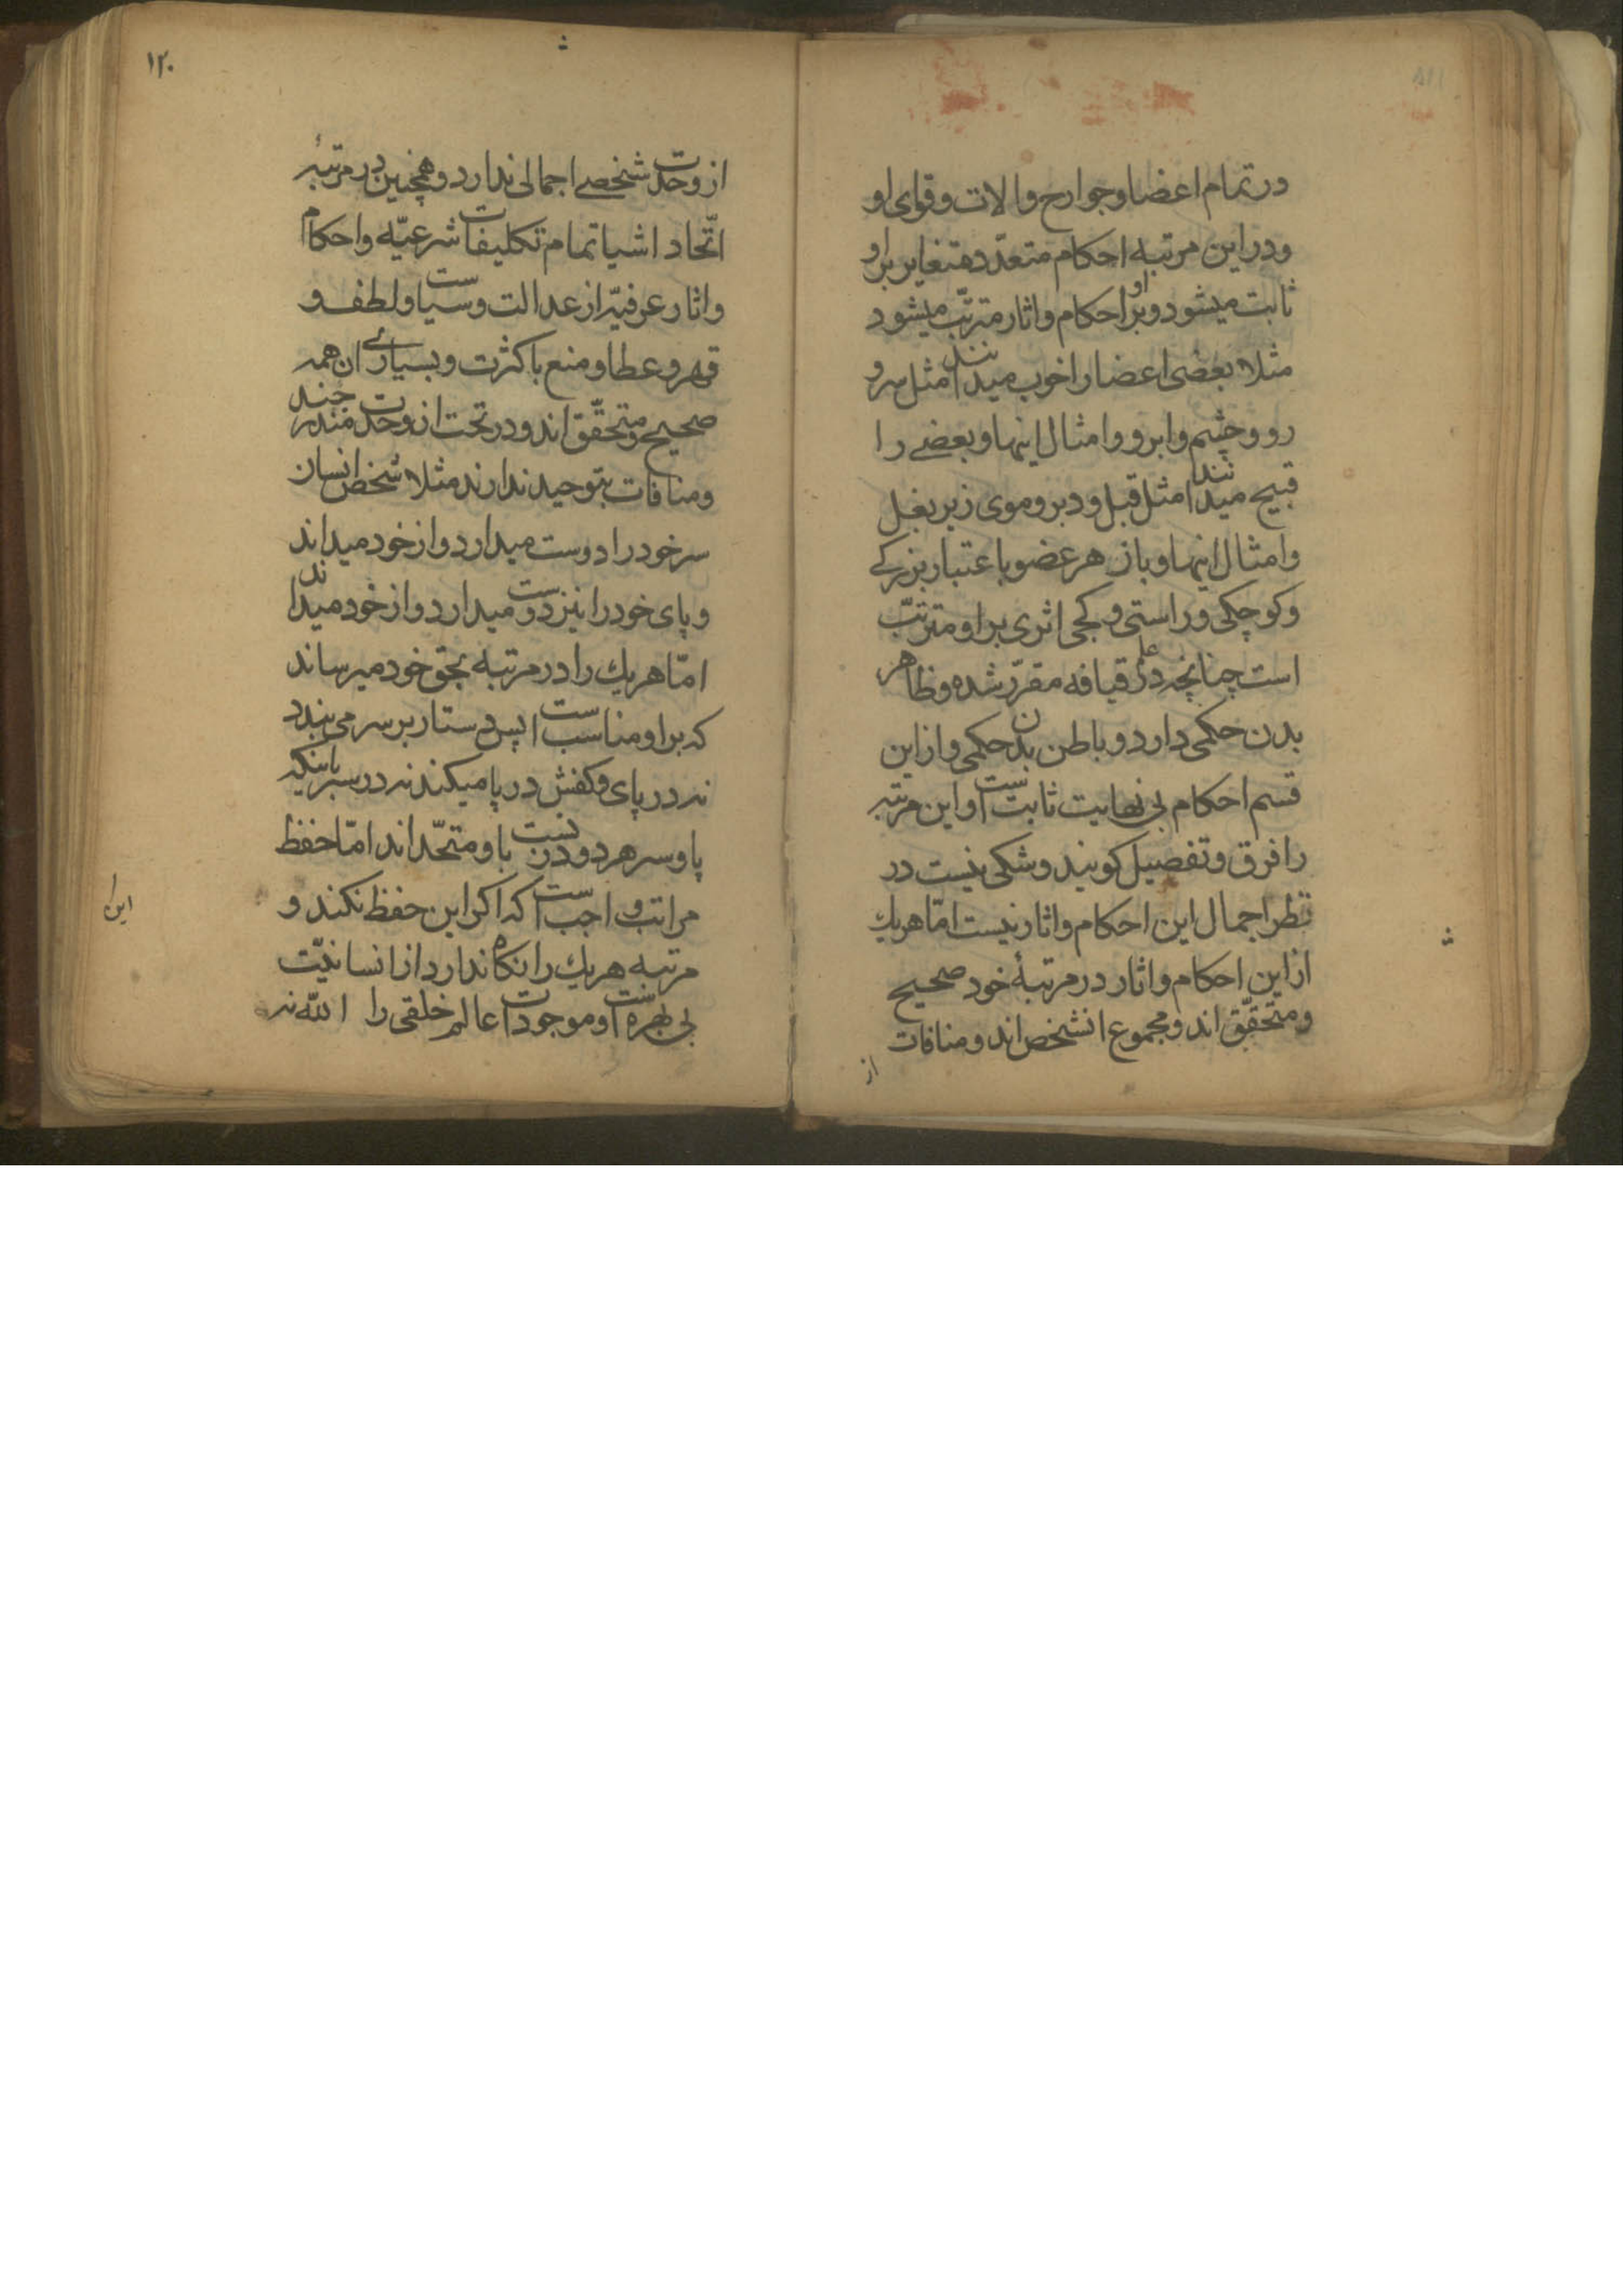 در تمام اعضا و جوارح و الات و قوای او
و در این مرتبه احکام متعدّد و متغایر بر او
ثابت میشود و بر او احکام و اثار مترتّب میشود
مثلا بعضی اعضا را خوب میدانند مثل سر و
رو و چشم و ابرو و امثال اینها و بعضے را
قبیح میدانند مثل قبل و دبر و موی زیر بغل
و امثال اینها و باز هر عضو باعتبار بزرکے
و کوچکی و راستی و کجی اثری بر او مترتّب
است چنانچه در علم قیافه مقرّر شده و ظاهر
بدن حکمی دارد و باطن بدن حکمی و از این
قسم احکام بی نهایت ثابت است و این مرتبه
را فرق و تفصیل کویند و شکی نیست در
نظر اجمال این احکام و اثار نیست امّا هریك
از این احکام و اثار در مرتبهٔ خود صحیح
و متحقّق اند و مجموع انشخص اند و منافات
از
۱۲۰
از وحدت شخصے اجمالی ندارد و همچنین در مرتبهٔ
اتّحاد اشیا تمام تکلیفات شرعیّه و احکام
و اثار عرفیّه از عدالت و سیاست و لطف و
قهر و عطا و منع با کثرت و بسیارے ان همه
صحیح و متحقّق اند و در تحت ان وحدت مندرجند
و منافات بتوحید ندارند مثلا شخص انسان
سر خود را دوست میدارد و از خود میداند
و پای خود را نیز دوست میدارد و از خود میداند
امّا هریك را در مرتبه بحق خود میرساند
که بر او مناسب است پس دستار بر سر می بندد
نه در پای و کفش در پا میکند نه در سر با اینکه
پا و سر هر دو در نسبت با و متحّد اند امّا حفظ
مراتب واجب است که اکر این حفظ نکند و
مرتبه هریك را نکاه ندارد از انسانیّت
بی بهره است و موجودات عالم خلقی را الله نه
این را